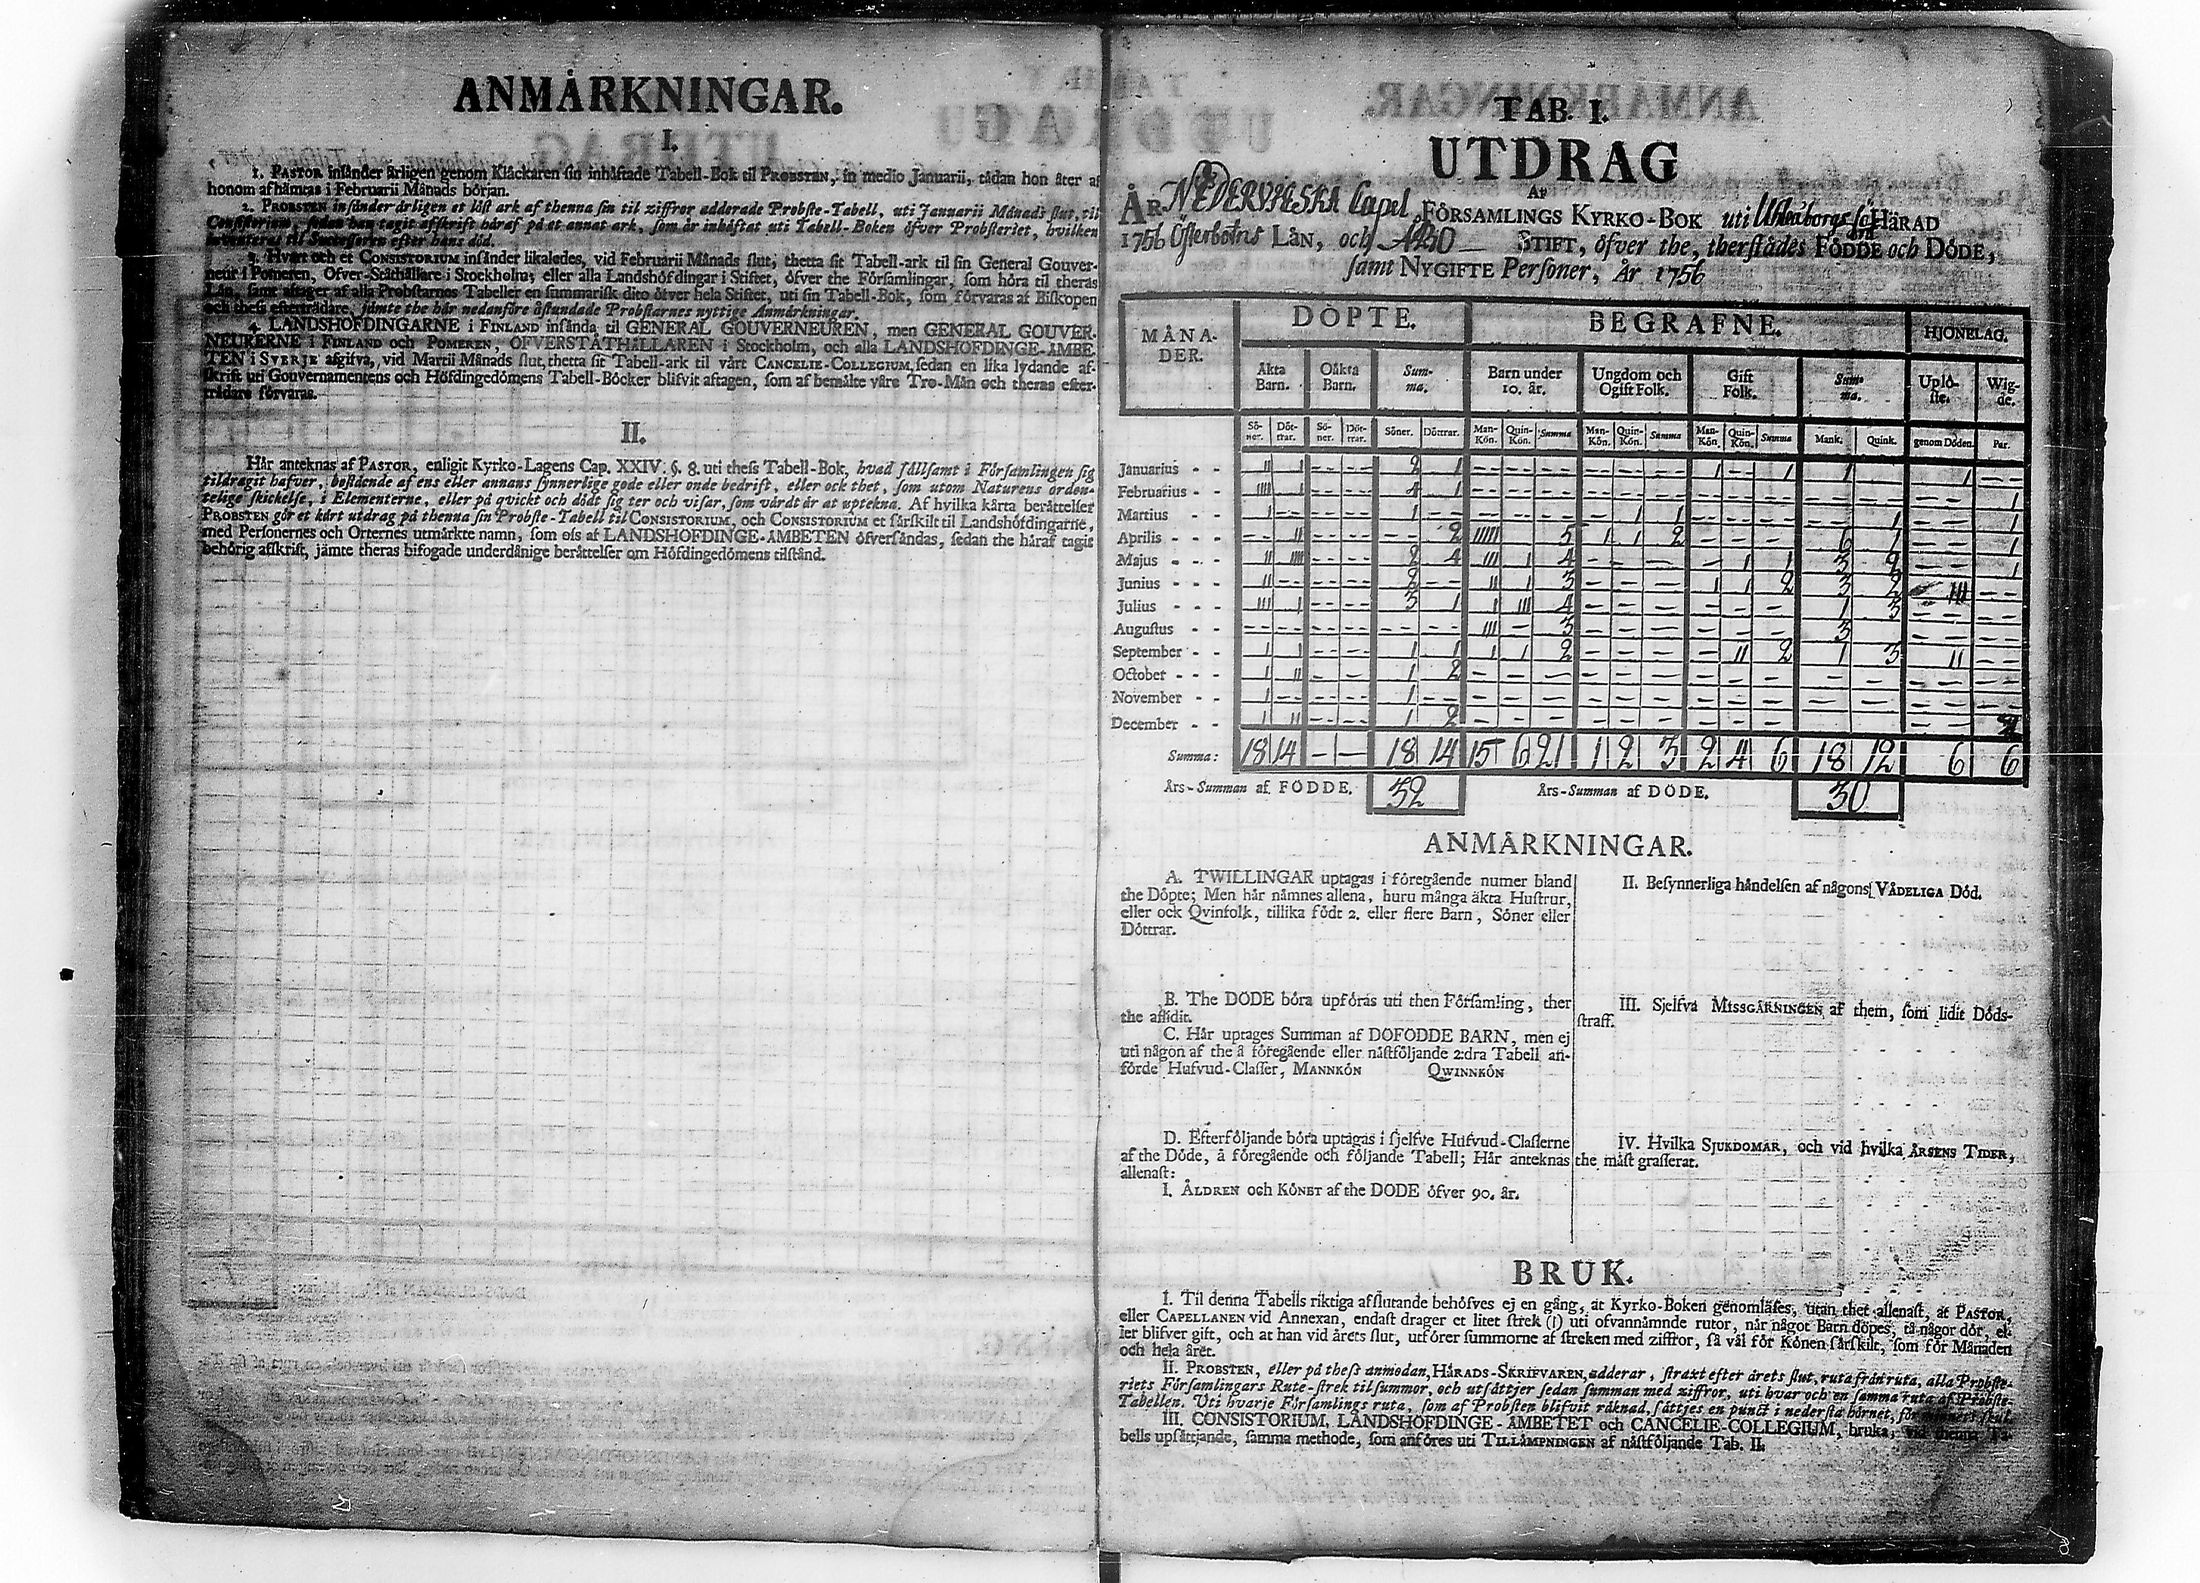 ANMÄRKNINGAR.
I.
1. PASTOR insånder årligen genom Klåckaren sin inhåftade Tabell-Bok til PROBSTEN, in medio Januarii, tådan hon åter af
honom afhåmtas i Februarii Månads början.
2. PROBSTEN insånder årligen et löst ark af thenna sin til ziffror adderade Probste-Tabell, uti Januarii Månads slut, til
Consistorium, sedan han tagit afskrift håraf på et annat ark, som år inhåftat uti Tabell-Boken öfver Probsteriet, hvilken
inventeras til Successoren efter hans död.
3. Hvart och et CONSISTORIUM insånder likaledes, vid Februarii Månads slut, thetta sit Tabell-ark til sin General Gouver-
neur i Pomeren, Öfver-Ståthållare i Stockholm, eller alla Landshöfdingar i Stiftet, öfver the Församlingar, som höra til theras
Lån, samt aftager af alla Probstarnes Tabeller en summarisk dito öfver hela Stiftet, uti sin Tabell-Bok, som förvaras af Biskopen
och thess eftertrådare, jåmte the hår nedanföre åstundade Probstarnes nyttige Anmårkningar.
4. LANDSHÖFDINGARNE i FINLAND insånda til GENERAL GOUVERNEUREN, men GENERAL GOUVER-
NEURERNE i FINLAND och POMEREN, ÖFVERSTÅTHÅLLAREN i Stockholm, och alla LANDSHÖFDINGE-ÅMBE-
TEN i SVERJE afgifva, vid Martii Månads slut, thetta sit Tabell-ark til vårt CANCELIE-COLLEGIUM, sedan en lika lydande af-
skrift uti Gouvernamentens och Höfdingedömens Tabell-Böcker blifvit aftagen, som af bemålte våre Tro-Mån och theras efter-
trådare förvaras.
II.
Hår anteknas af PASTOR, enligit Kyrko-Lagens Cap. XXIV. §. 8. uti thess Tabell-Bok, hvad sållsamt i Församlingen sig
tildragit hafver, bestående af ens eller annans synnerlige gode eller onde bedrift, eller ock thet, som utom Naturens orden-
telige skickelse, i Elementerne, eller på qvickt och dödt sig ter och visar, som vårdt år at uptekna. Af hvilka kårta beråttelser
PROBSTEN gör et kårt utdrag på thenna sin Probste-Tabell til CONSISTORIUM, och CONSISTORIUM et sårskilt til Landshöfdingarne,
med Personernes och Orternes utmårkte namn, som oss af LANDSHÖFDINGE-ÅMBETEN öfversåndas, sedan the håraf tagit
behörig afskrift, jåmte theras bifogade underdånige beråttelser om Höfdingedömens tilstånd.
TAB. I.
UTDRAG
AF
ÅR NEDERVIESKA Capel FÖRSAMLINGS KYRKO-BOK uti Uhleåborgs HÄRAD
1756 Österbotns LÄN, och ÅBO STIFT, öfver the, therstådes FÖDDE och DÖDE,
samt NYGIFTE Personer, År 1756
MÅNA-DER. DÖPTE. BEGRAFNE. HJONELAG.
Åkta Barn. Oåkta Barn. Sum-ma. Barn under 10. år. Ungdom och Ogift Folk. Gift Folk. Sum-ma. Uplö-ste. Wig-de.
Sö-ner. Döt-trar. Sö-ner. Döt-trar. Söner. Döttrar. Man-Kön. Quin-Kön. Summa Man-Kön. Quin-Kön. Summa Man-Kön. Quin-Kön. Summa Mank. Quink. genom Döden. Par.
Januarius - - II I - - 2 1 - - - - - - I - 1 1 - I -
Februarius - - IIII I - - 4 1 - - - - - - - - - - - - 1
Martius - - I - - - 1 - - - - - I 1 - - - - 1 - -
Aprilis - - - II - - - 2 IIIII - 5 I I 2 - - - 6 1 - 1
Majus - - II IIII - - 2 4 III I 4 - - - - I 1 3 2 - 1
Junius - - - II - - - 2 - II I 3 - - - I I 2 3 2 III -
Julius - - - III I - - 3 1 I III 4 - - - - - - 1 3 - -
Augustus - - - - - - - - III - 3 - - - - - - 3 - - -
September - - I I - - 1 1 I I 2 - - - - II 2 1 3 II -
October - - - I II - - 1 2 - - - - - - - - - - - - -
November - - I - - - 1 - - - - - - - - - - - - - -
December - - I II - - 1 2 - - - - - - - - - - - -
Summa: 18 14 - - 18 14 15 6 21 1 2 3 2 4 6 18 12 6 6
Års-Summan af FÖDDE. 32 Års-Summan af DÖDE. 30
ANMÄRKNINGAR.
A. TWILLINGAR uptagas i föregående numer bland
the Döpte; Men hår nåmnes allena, huru många äkta Hustrur,
eller ock Qvinfolk, tillika födt 2. eller flere Barn, Söner eller
Döttrar.
B. The DÖDE böra upföras uti then Församling, ther
the aflidit.
C. Hår uptages Summan af DÖFÖDDE BARN, men ej
uti någon af the å föregående eller nåstföljande 2:dra Tabell an-
förde Hufvud-Classer, MANNKÖN QWINNKÖN
D. Efterföljande böra uptagas i sjelfve Hufvud-Classerne
af the Döde, å föregående och följande Tabell; Hår anteknas
allenast:
I. ÅLDREN och KÖNET af the DÖDE öfver 90. år.
II. Besynnerliga håndelsen af någons VÅDELIGA Död.
III. Sjelfva MISSGÄRNINGEN af them, som lidit Döds-
straff.
IV. Hvilka SJUKDOMAR, och vid hvilka ÅRSENS TIDER,
the måst grasserat.
BRUK.
I. Til denna Tabells riktiga afslutande behöfves ej en gång, at Kyrko-Boken genomläses, utan thet allenast, at PASTOR,
eller CAPELLANEN vid Annexan, endast drager et litet strek (|) uti ofvannåmnde rutor, når något Barn döpes, tå någor dör, el-
ler blifver gift, och at han vid årets slut, utförer summorne af streken med ziffror, så vål för Könen sårskilt, som för Månaden
och hela året.
II. PROBSTEN, eller på thess anmodan, HÅRADS-SKRIFVAREN, adderar, straxt efter årets slut, ruta från ruta, alla Probste-
riets Församlingars Rute-strek til summor, och utsåttjer sedan summan med ziffror, uti hvar och en samma ruta af Probste-
Tabellen. Uti hvarje Församlings ruta, som af Probsten blifvit råknad, såttjes en punct i nedersta hörnet, för minnets skul.
III. CONSISTORIUM, LANDSHÖFDINGE-ÅMBETET och CANCELIE-COLLEGIUM, bruka, vid thenna Ta-
bells upsåttjande, samma methode, som anföres uti TILLÅMPNINGEN af nåstföljande Tab. II.